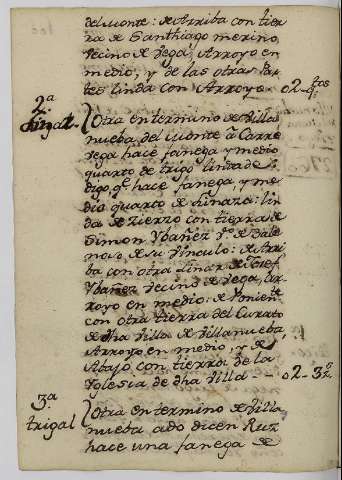 del Monte: de Arriba con tier
ra de Santhiago merino,
Vecino de Vega, Arroyo en
medio, y de las otras Par
tes linda con Arroyo - 02-
2ª
trigal -
Otra en termino de Villa
nueba del Monte â Carre
Vega hace fanega y medio
quarto de trigo linda de
digo, q.e hace fanega, y me
dio quarto de linaza: lin
da de Zierzo con tierra de
Simon Ybañez V.º de Bale
noso, de su Vinculo: de Arri
ba con otra Linar de Josef
Ybañez Vecino de Vega, Ar
royo en medio: de Ponien.te
con otra tierra del Curato
de dha Villa de Villanueba,
Arroyo en medio, y de
Abajo con tierra de la
Yglesia de dha Villa - 02-3
3ª
trigal
Otra en termino de Villa
nueba ado dicen Ruz
hace una fanega de